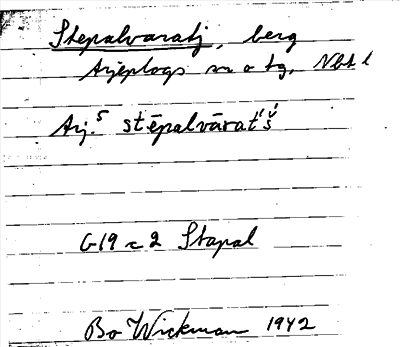 Stepalvaratj, berg
Arjeplogs sn o tg, Nbt l
Arj.⁵ stēpalvārat́š́
G19 c 2 Stapal
Bo Wickman 1942